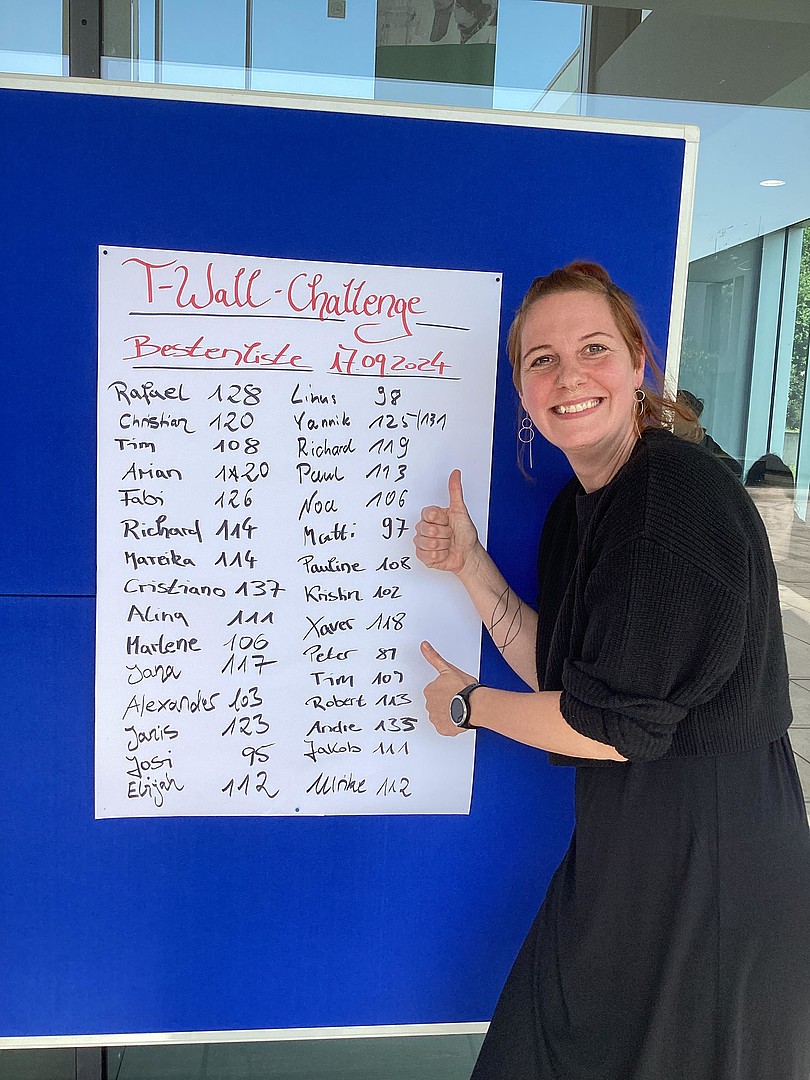 T-Wall-Challenge
Bestenliste 17.09.2024
Rafael 128
Christian 120
Tim 108
Arian 120
Fabi 126
Richard 114
Mareika 114
Cristiano 137
Alina 111
Marlene 106
Jana 117
Alexander 103
Janis 123
Josi 95
Elijah 112
Linus 98
Yannik 125/131
Richard 119
Paul 113
Noa 106
Matti 97
Pauline 108
Kristin 102
Xaver 118
Peter 87
Tim 109
Robert 113
Andie 135
Jakob 111
Ulrike 112